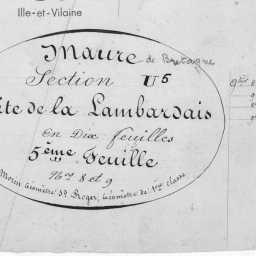 Ille-et-Vilaine
Maure de Bretagne
Section U5
ite de la Lambardais
en Dix feuilles
5ème Feuille
Nos 8 et 9
Géomètre
Roger, Géomètre de 1ère classe